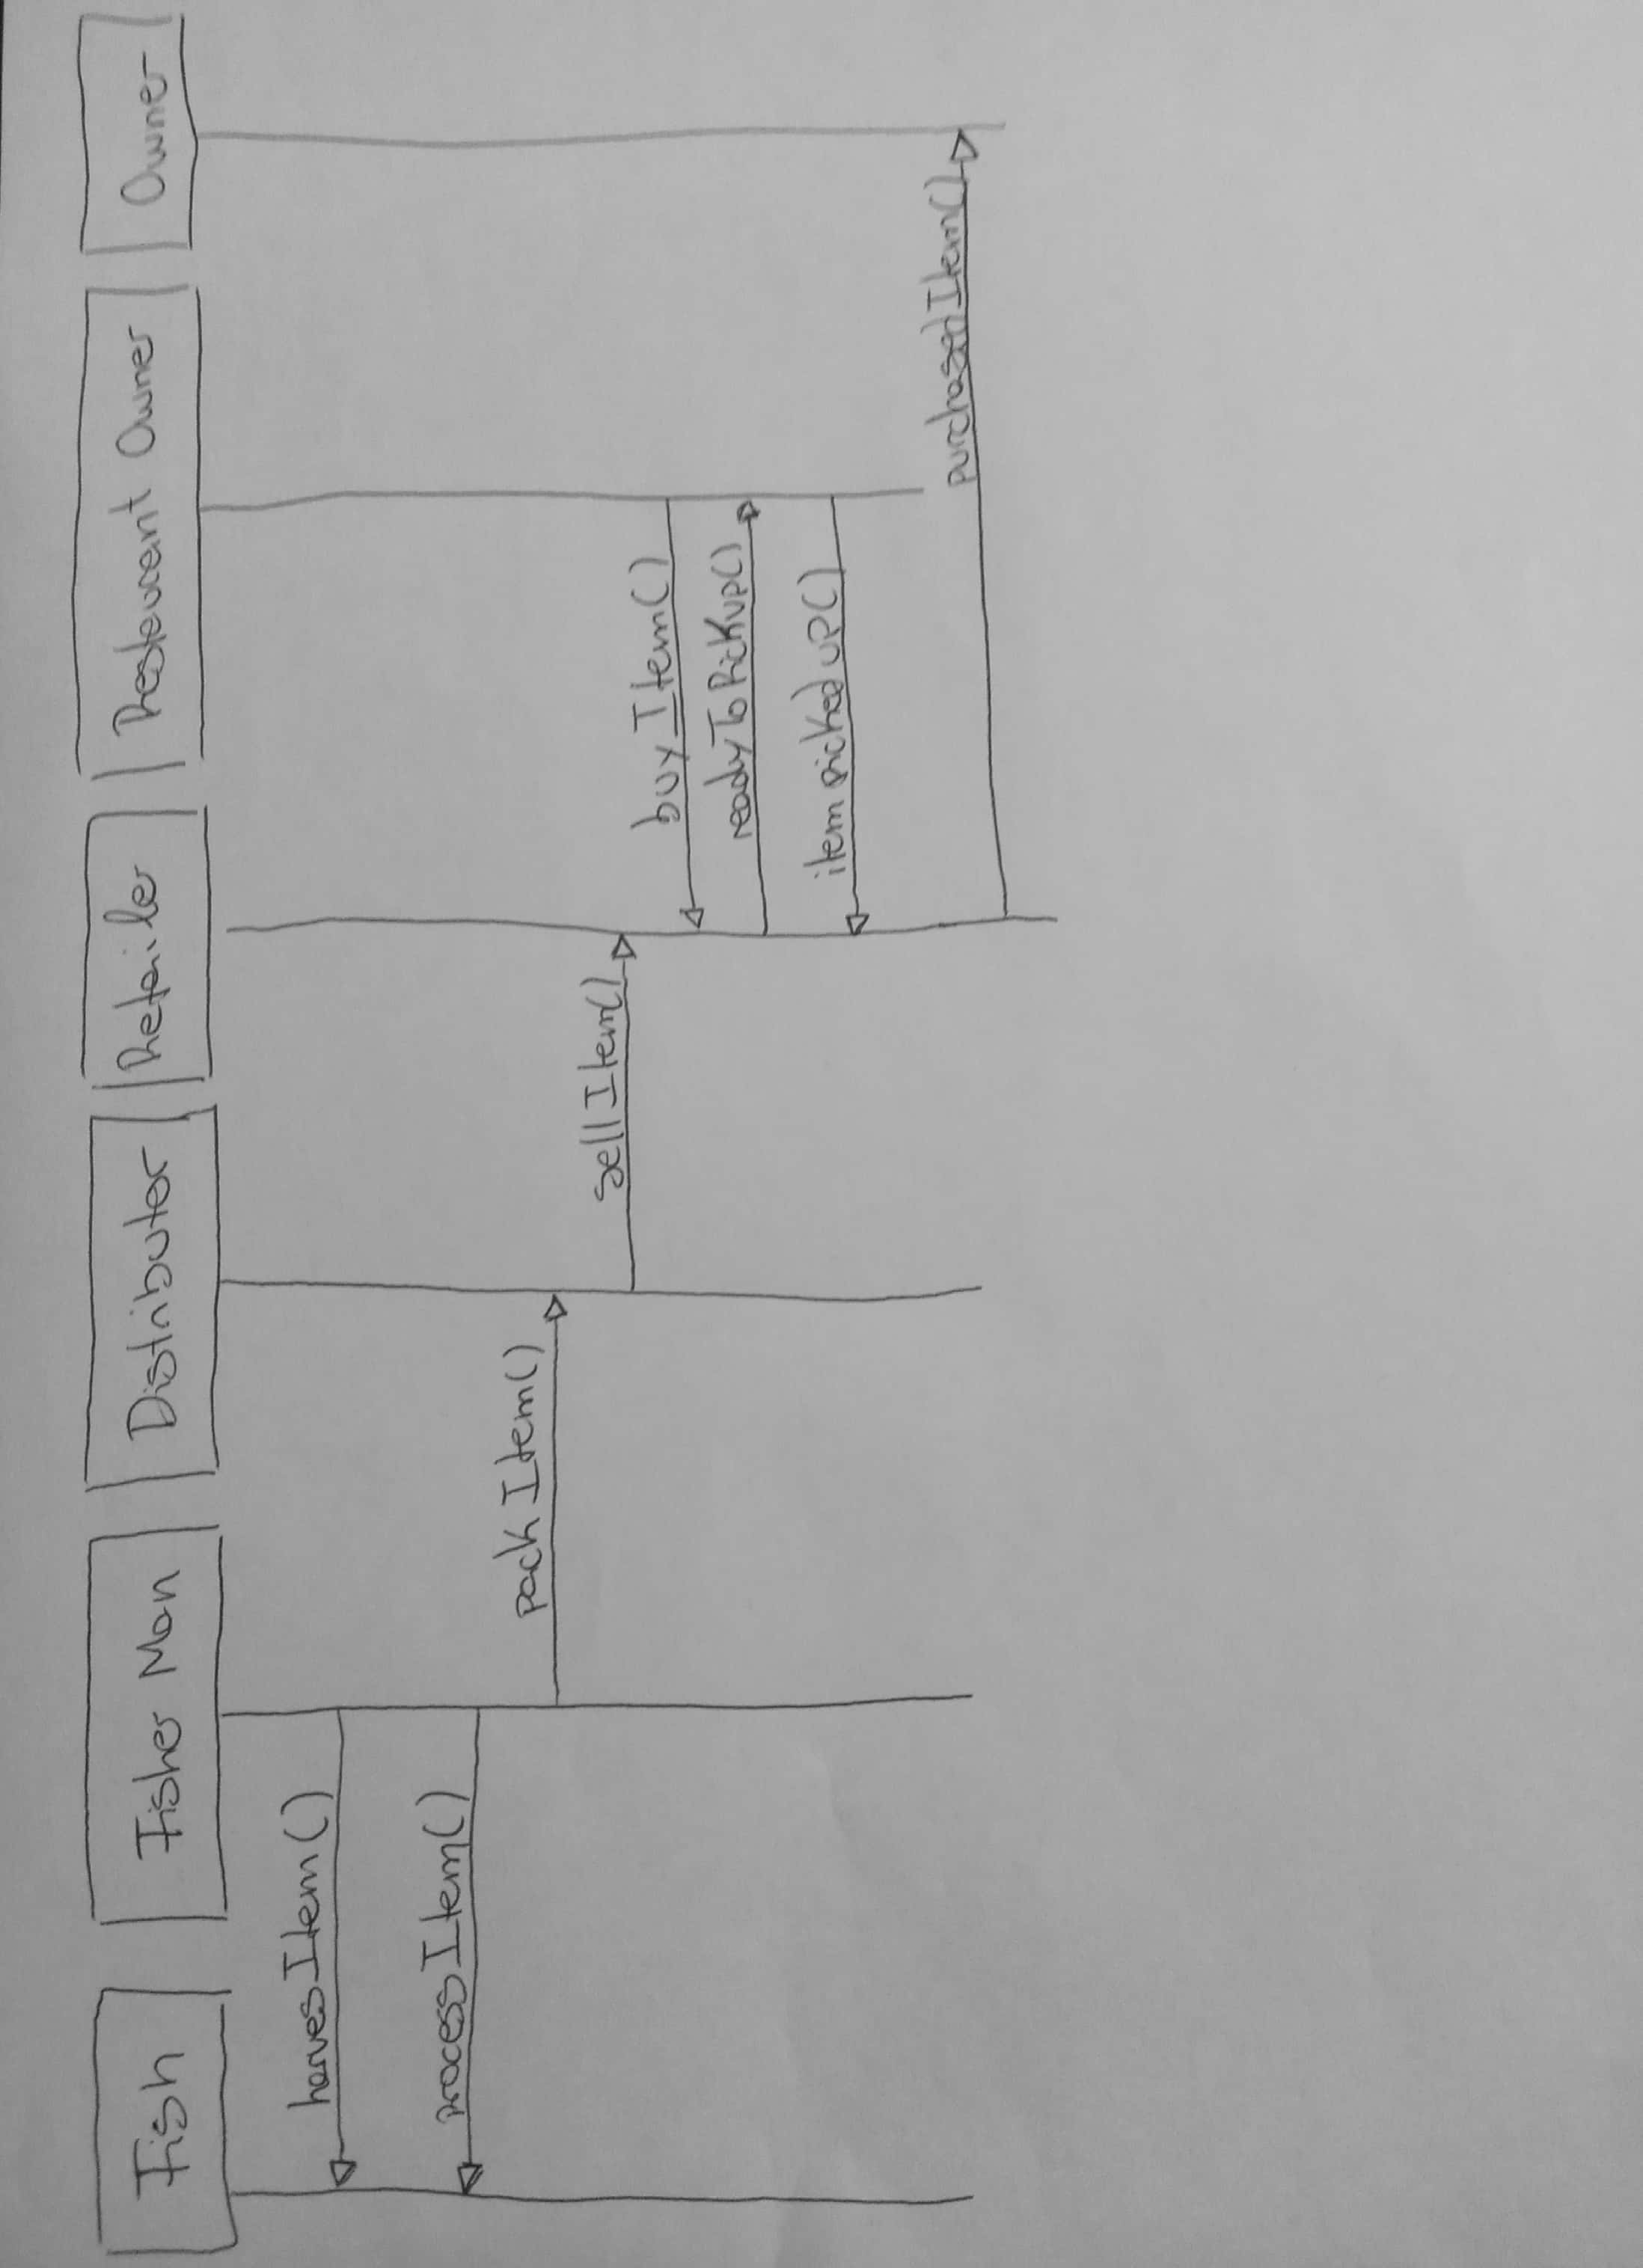 Fish
Fisher Man
Distributor
Retailer
Restaurant Owner
Owner
harvesItem()
processItem()
packItem()
sellItem()
buyItem()
readyToPickUP()
itemPickedUP()
purchasedItem()